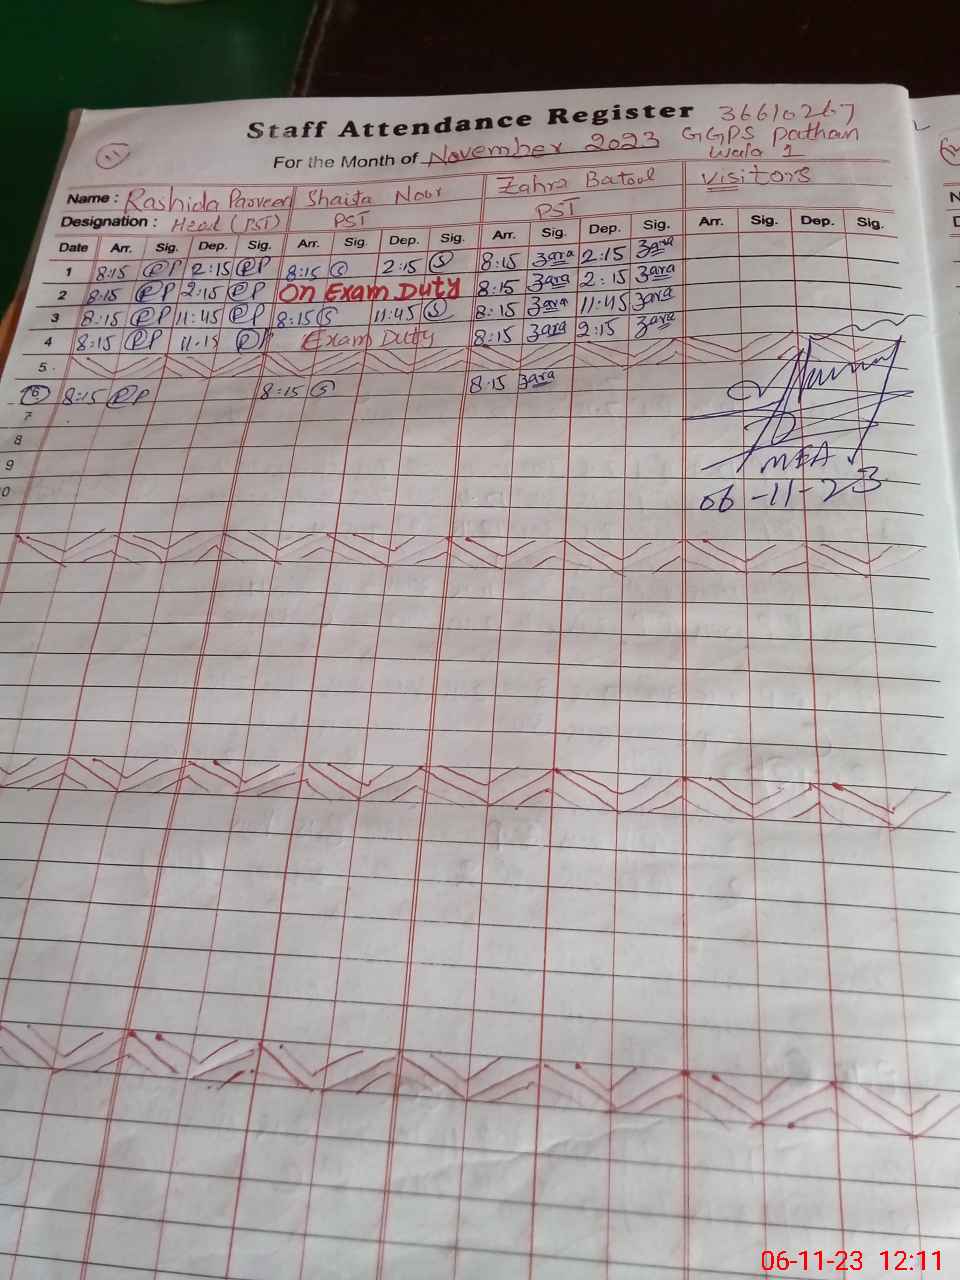 Staff Attendance Register 36610267
11 For the Month of November 2023 GGPS Pathan
Wala 1
Name : Rashida Parveen Shaista Noor Zahra Batool Visitors
Designation : Head (PST) PST PST
Date Arr. Sig. Dep. Sig. Arr. Sig. Dep. Sig. Arr. Sig. Dep. Sig. Arr. Sig. Dep. Sig.
1 8:15 RP 2:15 RP 8:15 S 2:15 S 8:15 Zara 2:15 Zara
2 8:15 RP 2:15 RP On Exam Duty 8:15 Zara 2:15 Zara
3 8:15 RP 11:45 RP 8:15 S 11:45 S 8:15 Zara 11:45 Zara
4 8:15 RP 11:15 RP Exam Duty 8:15 Zara 2:15 Zara
5
6 8:15 RP 8:15 S 8:15 Zara
7
8
9 MEA
0 06-11-23
06-11-23 12:11